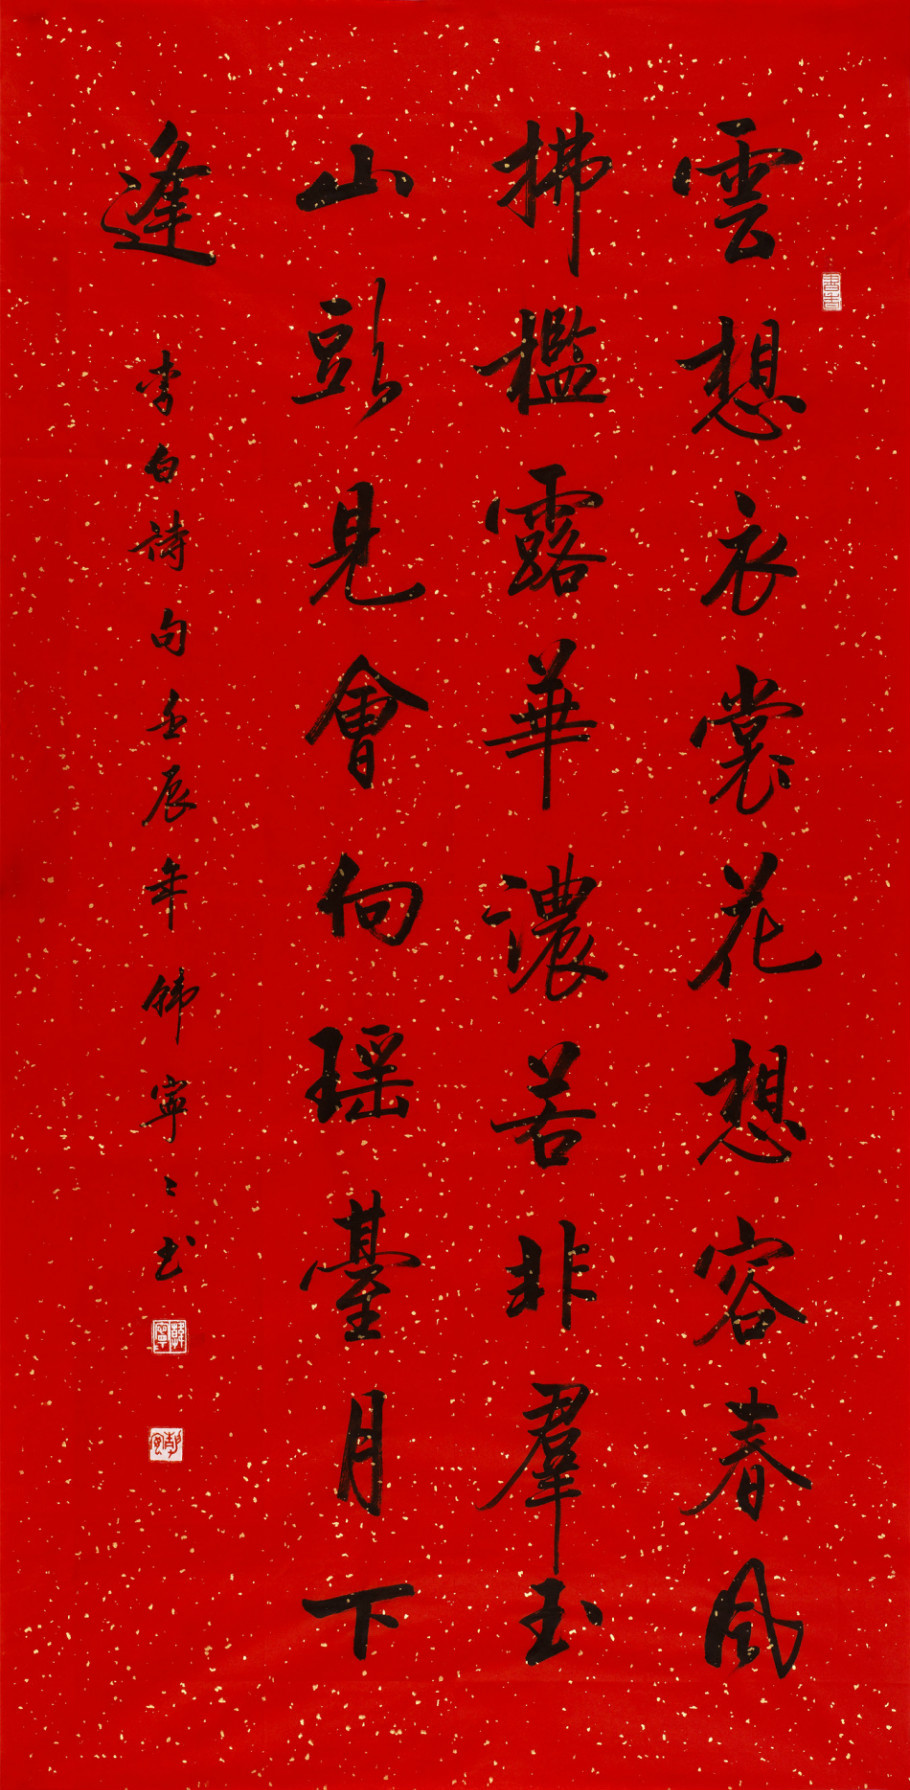 雲想衣裳花想容春風
拂檻露華濃若非羣玉
山頭見會向瑶臺月下
逢
李白詩句壬辰年韓寧寧書
韓寧